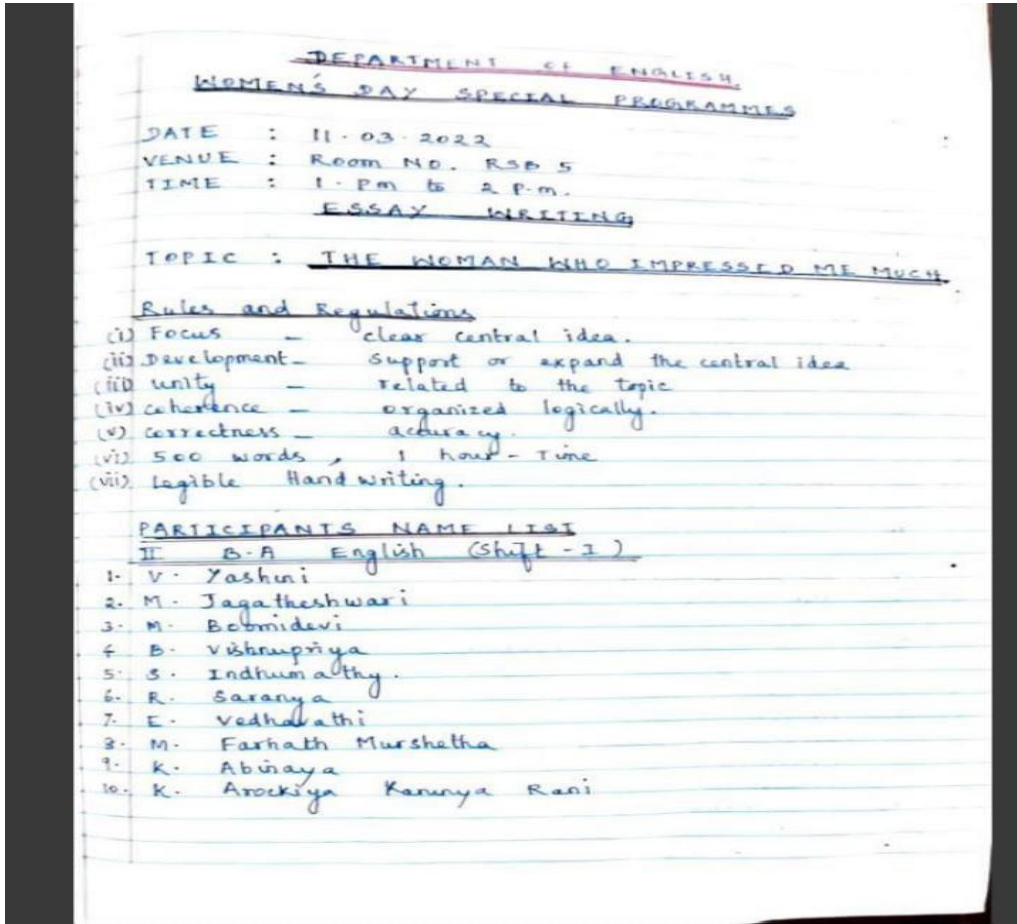 DEPARTMENT OF ENGLISH
WOMEN'S DAY SPECIAL PROGRAMMES
DATE : 11.03.2022
VENUE : Room NO. RSB 5
TIME : 1.Pm to 2 P.m.
ESSAY WRITING
TOPIC : THE WOMAN WHO IMPRESSED ME MUCH
Rules and Regulations
(i) Focus – clear central idea.
(ii) Development – Support or expand the central idea
(iii) unity – related to the topic
(iv) coherence – organized logically.
(v) correctness – accuracy.
(vi) 500 words, 1 hour - Time
(vii) Legible Hand writing.
PARTICIPANTS NAME LIST
II B.A English (Shift - I)
1. V. Yashini
2. M. Jagatheshwari
3. M. Boomidevi
4 B. Vishnupriya
5. S. Indhumathy.
6. R. Saranya
7. E. Vedhavathi
8. M. Farhath Murshetha
9. K. Abinaya
10. K. Arockiya Karunya Rani